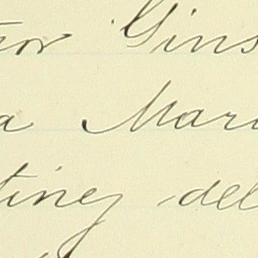 tor Gins
a Mari
tiney del